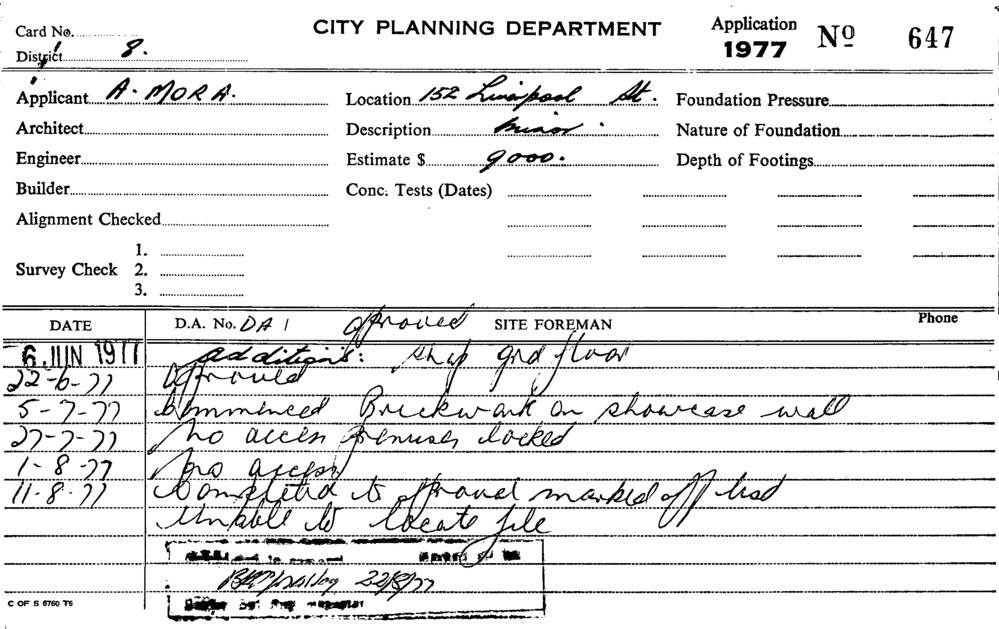 Card No.
CITY PLANNING DEPARTMENT
Application 1977 No 647
District 8.
Applicant A. MORA.
Location 152 Liverpool St.
Foundation Pressure
Architect
Description minor.
Nature of Foundation
Engineer
Estimate $ 9000.
Depth of Footings
Builder
Conc. Tests (Dates)
Alignment Checked
Survey Check 1. 2. 3.
DATE D.A. No. DA 1 aproved SITE FOREMAN Phone
6 JUN 1977 additions: shop grd floor
22-6-77 aproved
5-7-77 Comminced Brickwork on showcase wall
27-7-77 no access premises locked
1-8-77 no access
11-8-77 Completed to aproval marked off
Unable to locate file
22/8/77
C OF S 6760 T6